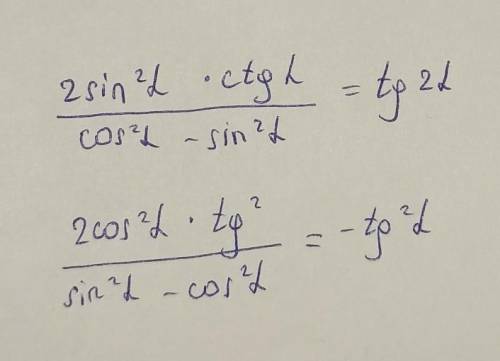 2sin²α · ctg α / cos²α - sin²α = tg 2α
2cos²α · tg² / sin²α - cos²α = - tg²α